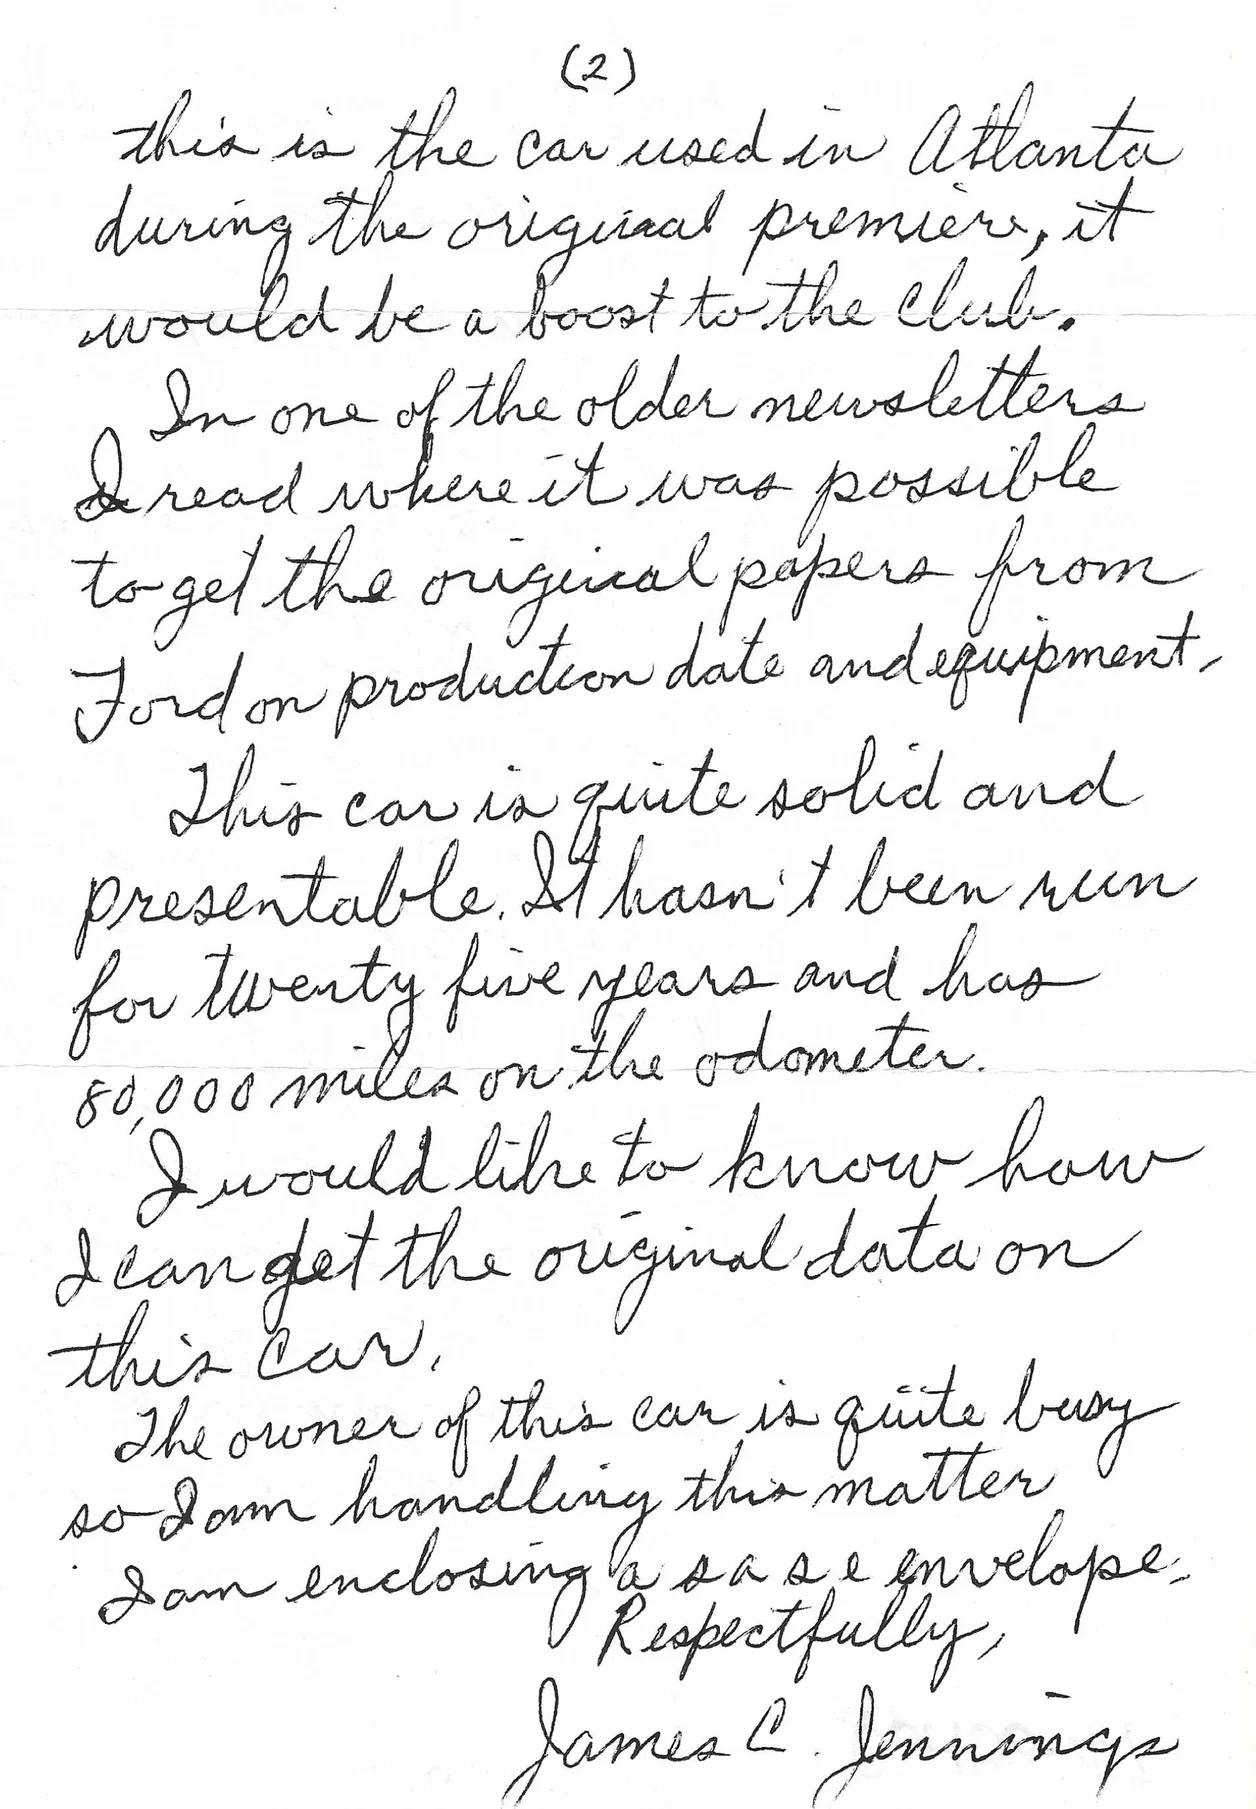 (2)
this is the car used in Atlanta
during the original premiere, it
would be a boost to the Club.
In one of the older newsletters
I read where it was possible
to get the original papers from
Ford on production date and equipment.
This car is quite solid and
presentable. It hasn't been run
for twenty five years and has
80,000 miles on the odometer.
I would like to know how
I can get the original data on
this car.
The owner of this car is quite busy
so I am handling this matter
I am enclosing a s a s e envelope.
Respectfully,
James C. Jennings